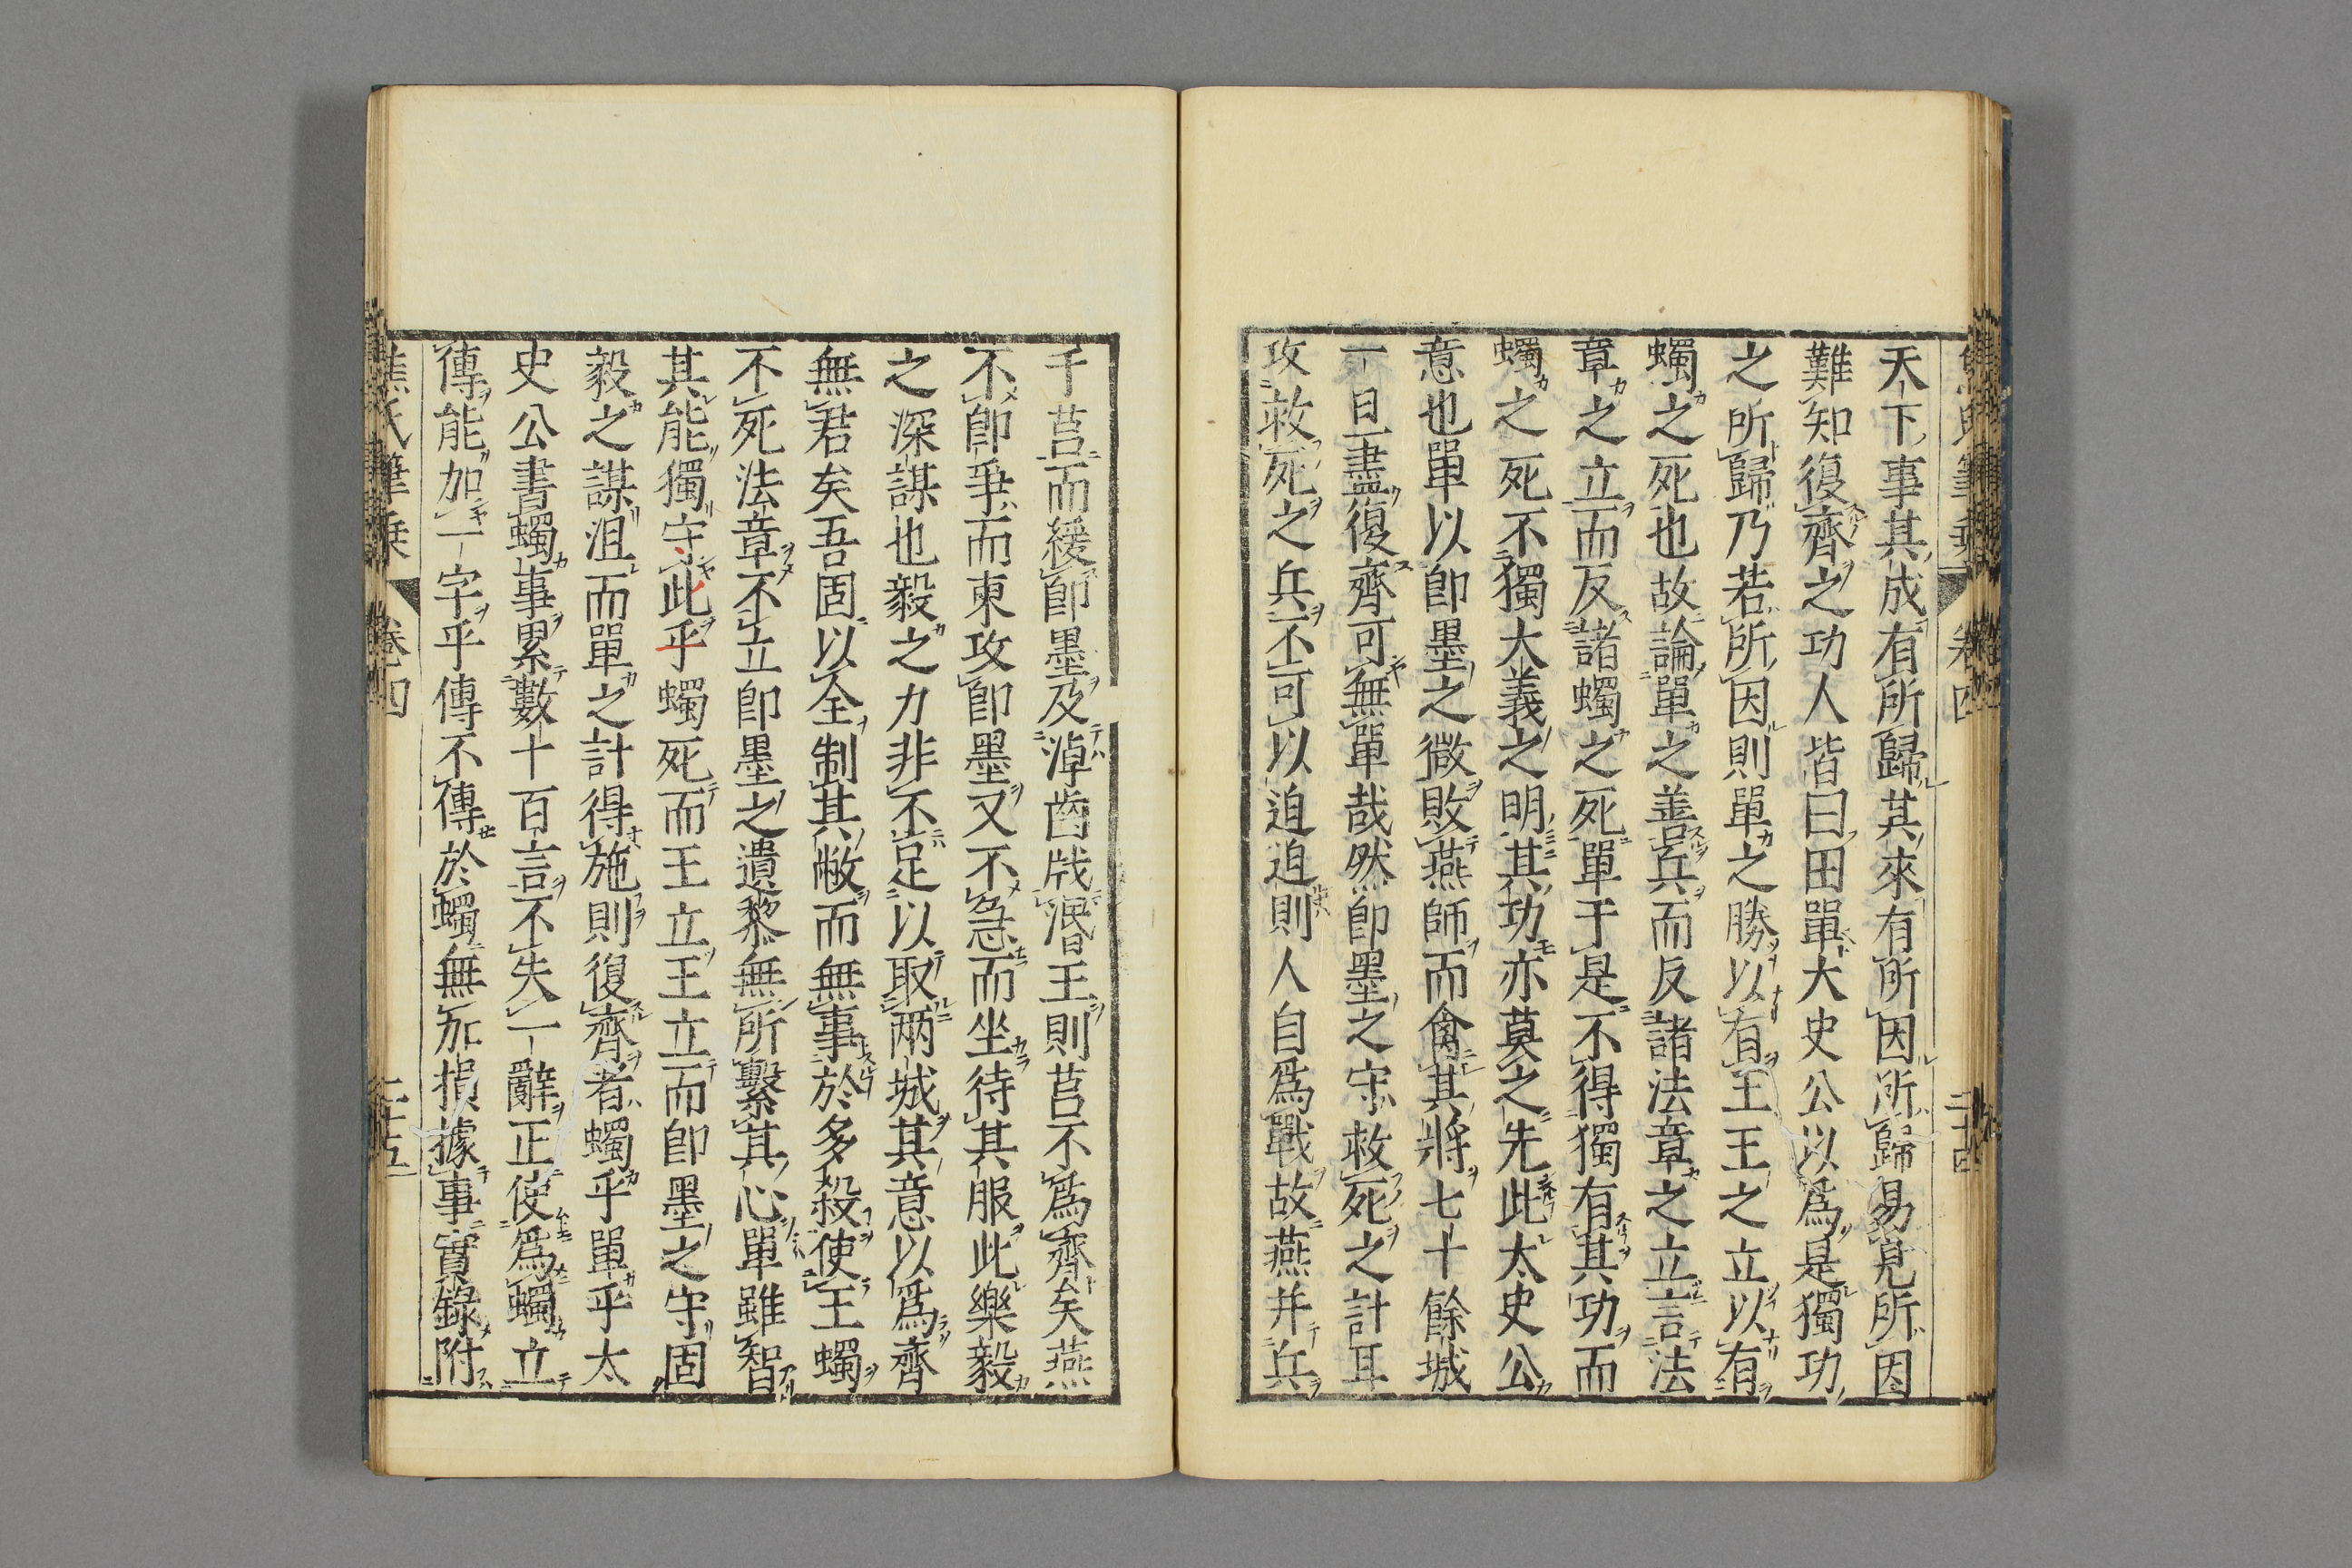 天下事其成有所歸其來有所因所歸易見所因
難知復齊之功人皆曰田單大史公以爲是獨功
之所歸乃若所因則單之勝以有王王之立以有
蠋之死也故論單之善兵而反諸法章之立言法
章之立而反諸蠋之死單于是不得獨有其功而
蠋之死不獨大義之明其功亦莫之先此太史公
意也單以卽墨之微敗燕師而禽其將七十餘城
一日盡復齊可無單哉然卽墨之守救死之計耳
攻救死之兵不可以迫迫則人自爲戰故燕并兵
千莒而緩卽墨及淖齒戕湣王則莒不爲齊矣燕
不卽爭而東攻卽墨又不急而坐待其服此樂毅
之深謀也毅之力非不足以取兩城其意以爲齊
無君矣吾固以全制其敝而無事於多殺使王蠋
不死法章不立卽墨之遺黎無所繫其心單雖智
其能獨守此乎蠋死而王立王立而卽墨之守固
毅之謀沮而單之計得施則復齊者蠋乎單乎太
史公書蠋事累數十百言不失一辭正使爲蠋立
傳能加一字乎傳不傳於蠋無加損據事實錄附
焦氏筆乘 卷四 二十五